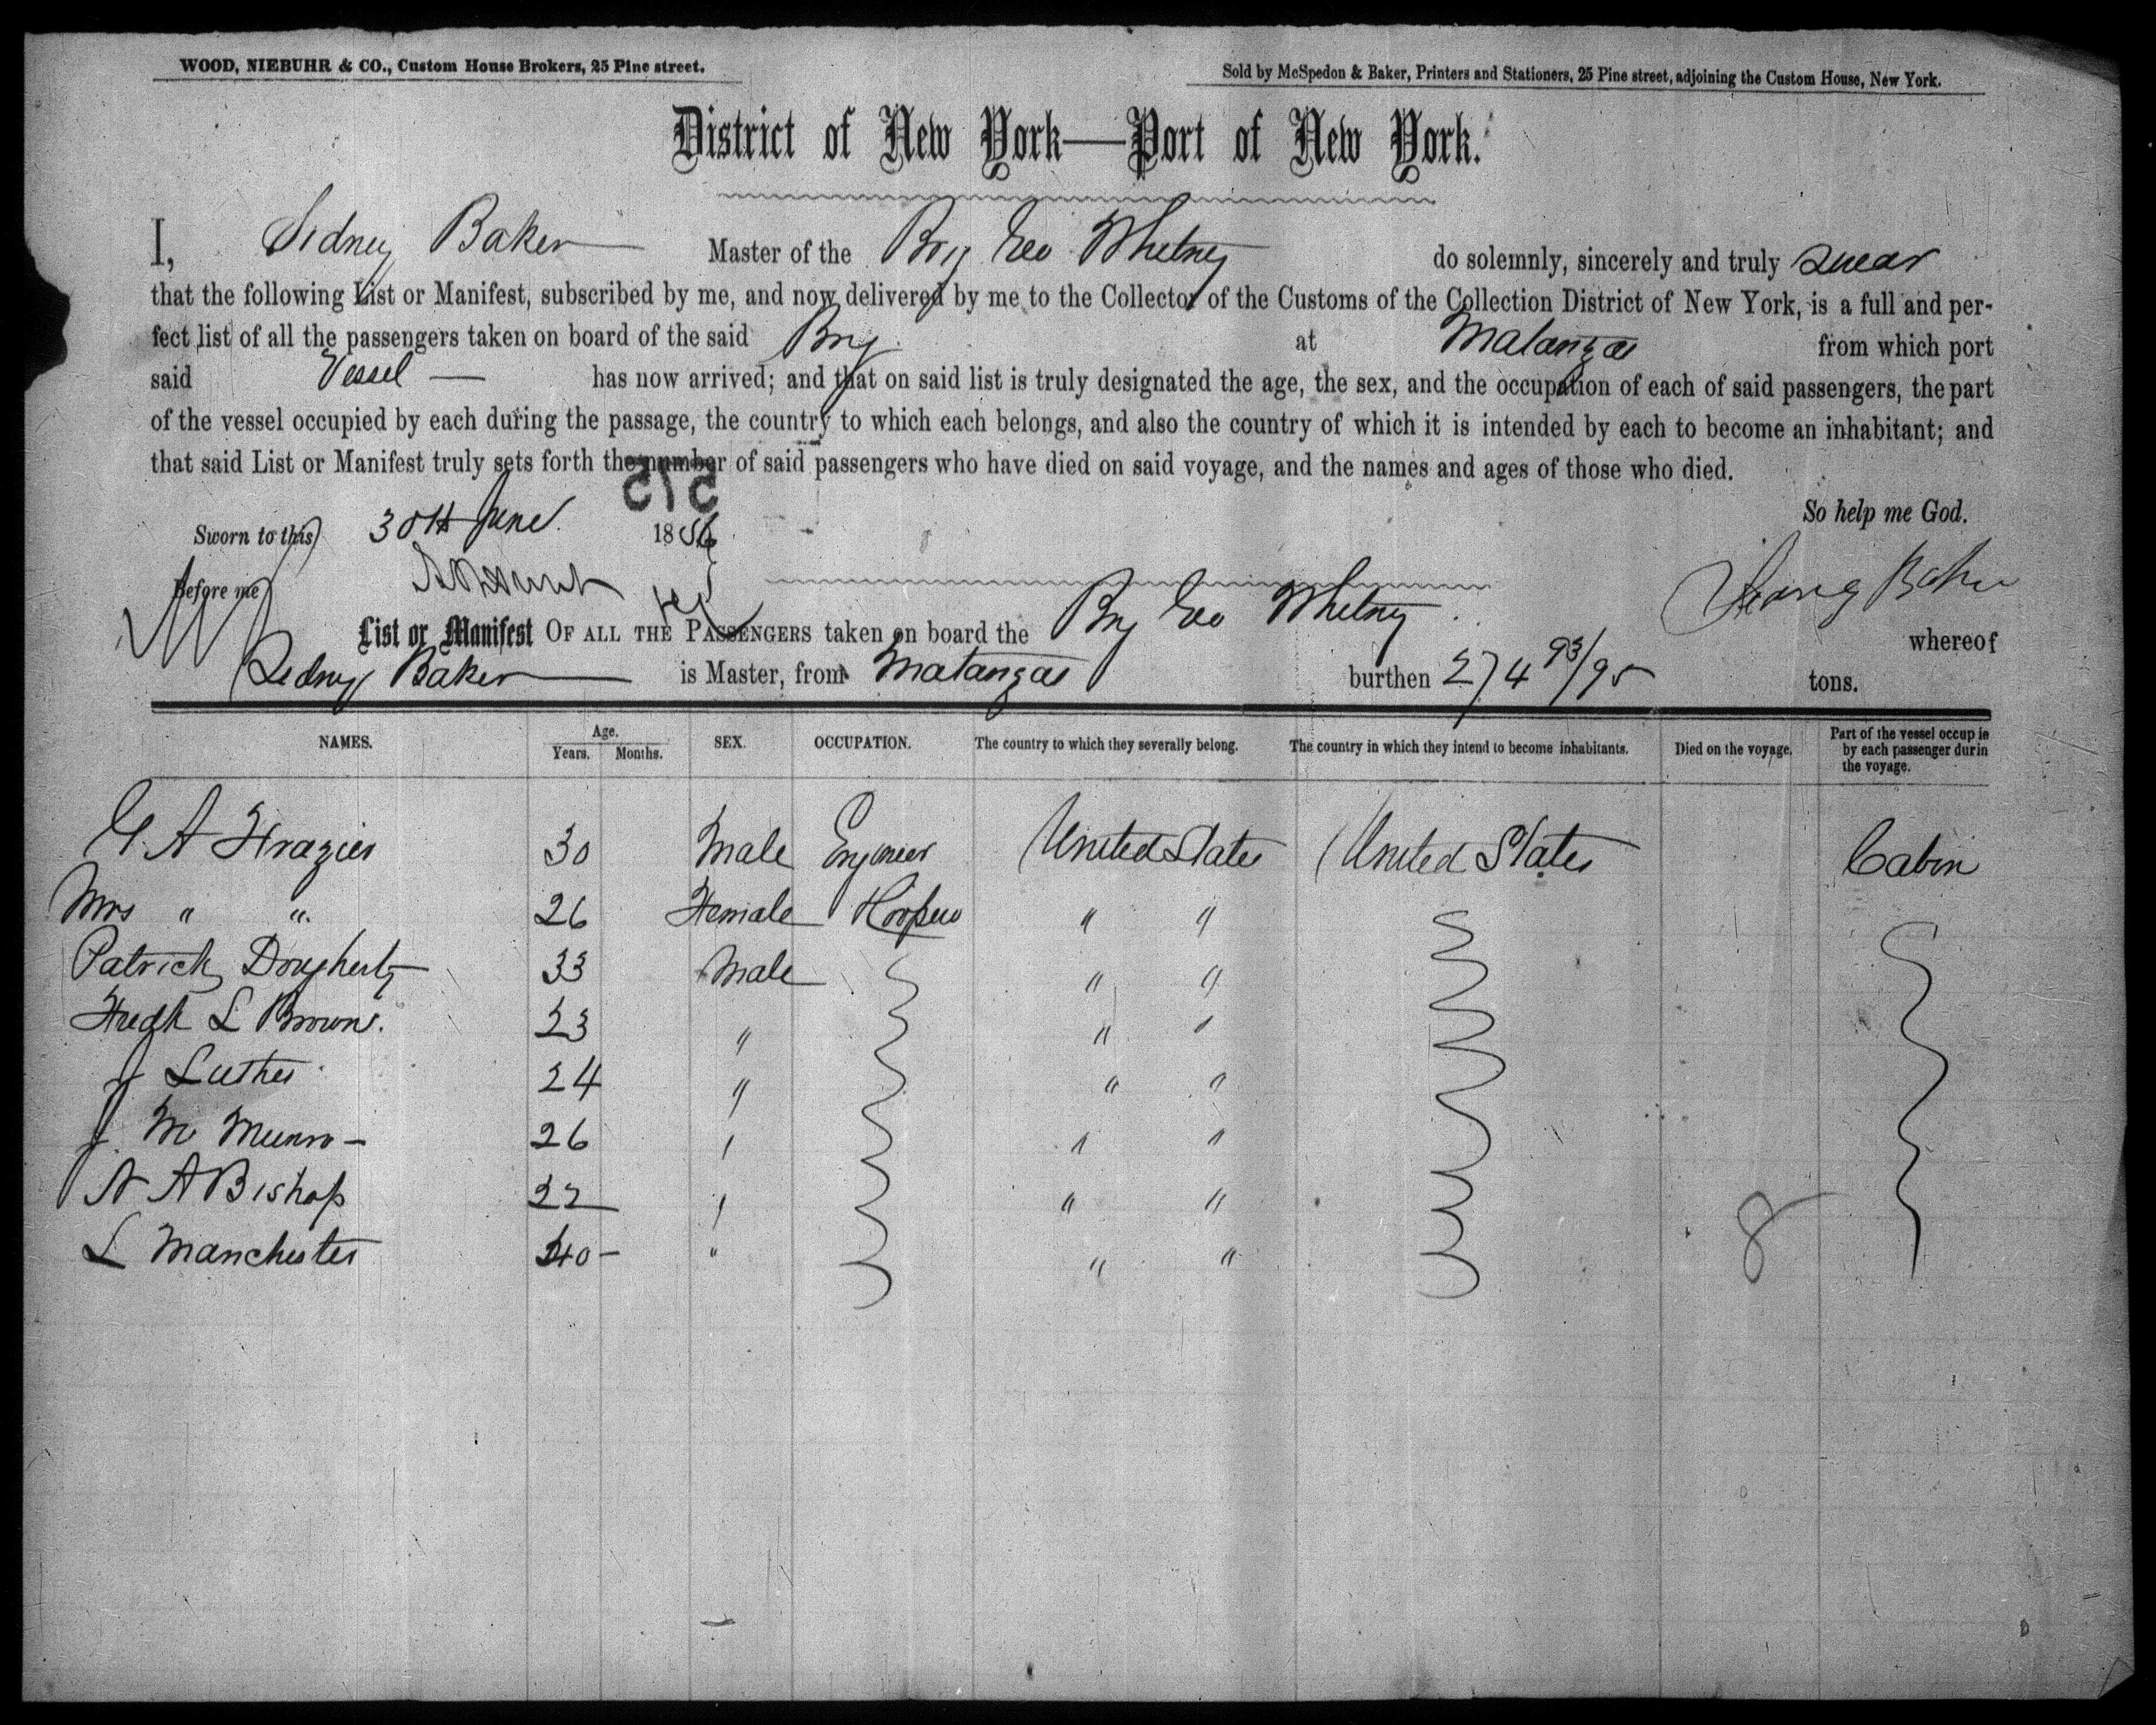 WOOD, NIEBUHR & CO., Custom House Brokers, 25 Pine street.
Sold by McSpedon & Baker, Printers and Stationers, 25 Pine street, adjoining the Custom House, New York.
District of New York—Port of New York.
I, Sidney Baker Master of the Brig Geo Whitney do solemnly, sincerely and truly swear
that the following List or Manifest, subscribed by me, and now delivered by me to the Collector of the Customs of the Collection District of New York, is a full and per-
fect list of all the passengers taken on board of the said Brig at Matanzas from which port
said Vessel — has now arrived; and that on said list is truly designated the age, the sex, and the occupation of each of said passengers, the part
of the vessel occupied by each during the passage, the country to which each belongs, and also the country of which it is intended by each to become an inhabitant; and
that said List or Manifest truly sets forth the number of said passengers who have died on said voyage, and the names and ages of those who died.
515
So help me God.
Sworn to this 30th June 1856
Before me
Sidney Baker
List or Manifest OF ALL THE PASSENGERS taken on board the Brig Geo Whitney whereof
Sidney Baker is Master, from Matanzas burthen 274 93/95 tons.
NAMES. Age. Years. Months. SEX. OCCUPATION. The country to which they severally belong. The country in which they intend to become inhabitants. Died on the voyage. Part of the vessel occup ie by each passenger durin the voyage.
G. A Frazier 30 Male Engineer United States United States Cabin
Mrs " " 26 Female " "
Patrick Dougherty 33 Male " "
Hugh L Brown. 23 " " "
J Luther 24 " " "
J. M Munro - 26 " " "
N A Bishop 22 " " "
L Manchester 40 - " " "
8